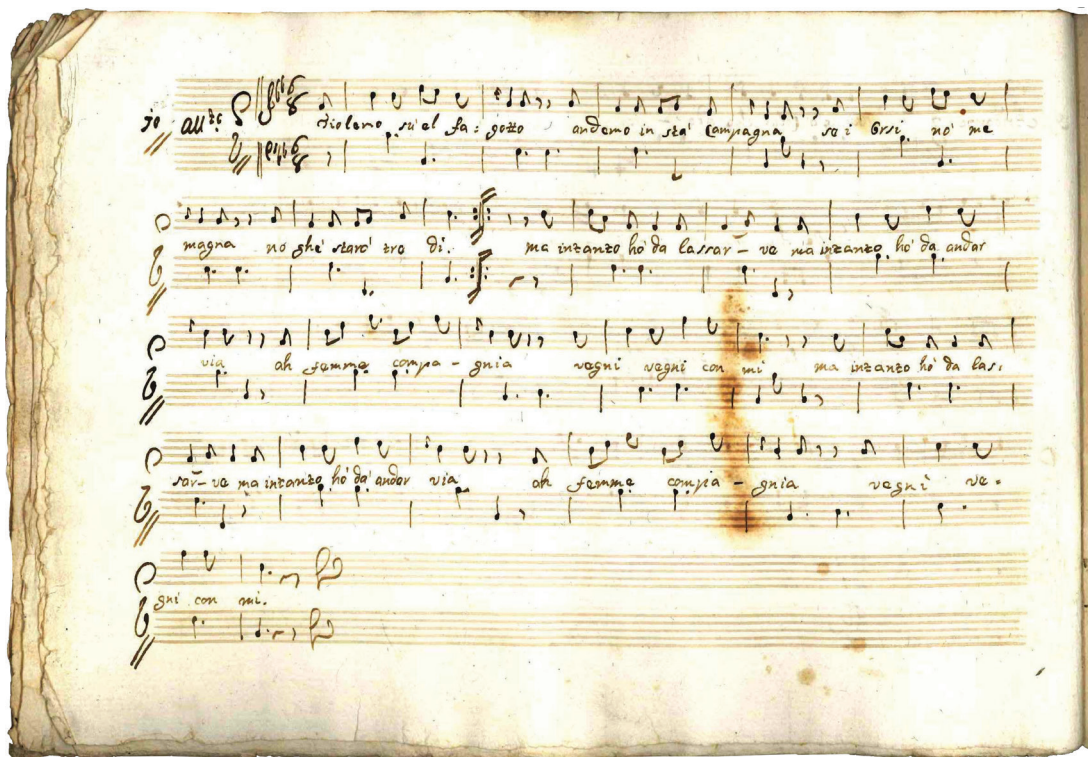 30 All:to
Tiolemo su'el fa: gotto andemo in sta' Campagna se i Orsi no' me
magna no ghe' staro' tro di. ma intanto ho' da lassar- ve ma intanto ho' da andar
via ah femme compa- gnia vegni vegni con mi ma intanto ho' da las:
sar- ve ma intanto ho' da' andar via ah femme compa- gnia vegni ve=
gni con mi.